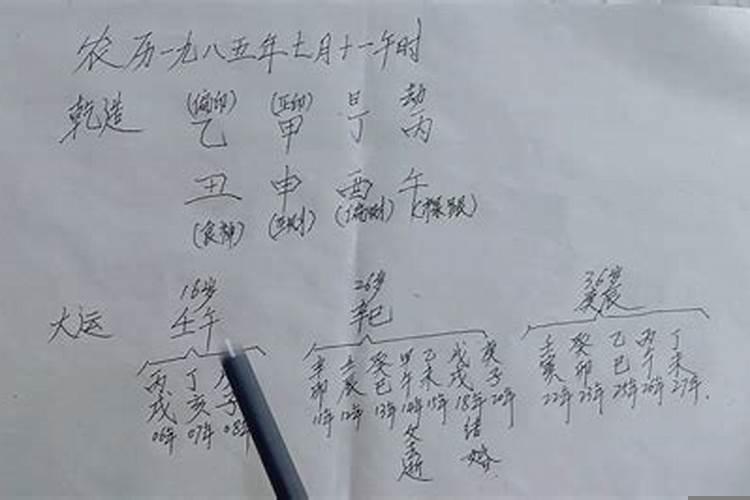 农历一九八五年七月十一午时
(偏印) (正印) 日 劫
乾造 乙 甲 丁 丙
丑 申 酉 午
(食神) (正财) (偏财)
16岁 26岁 36岁
大运 壬午 辛巳 庚辰
丙戌06年 丁亥07年 子08年
辛卯11年 壬辰12年 癸巳13年 甲午14年 乙未15年 戊戌18年 庚子20年
壬寅22年 癸卯23年 乙巳25年 丙午26年 丁未27年.
父去逝 结婚